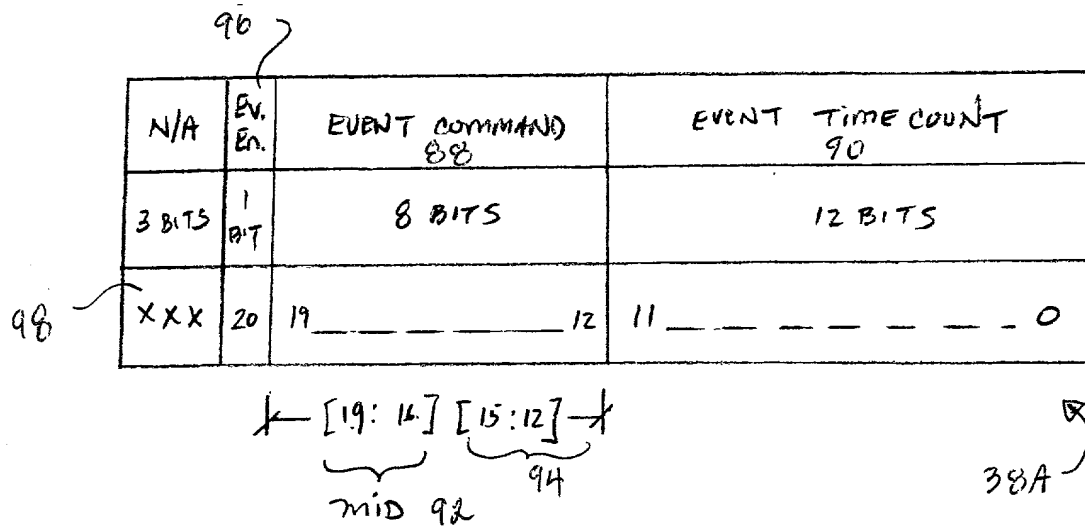 96
N/A Ev. En. EVENT COMMAND 88 EVENT TIME COUNT 90
3 BITS 1 BIT 8 BITS 12 BITS
98 XXX 20 19 12 11 0
[19: 16] [15:12]
MID 92 94
38A